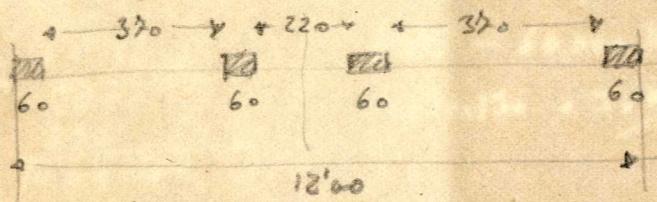 370 220 370
60 60 60 60
12'00